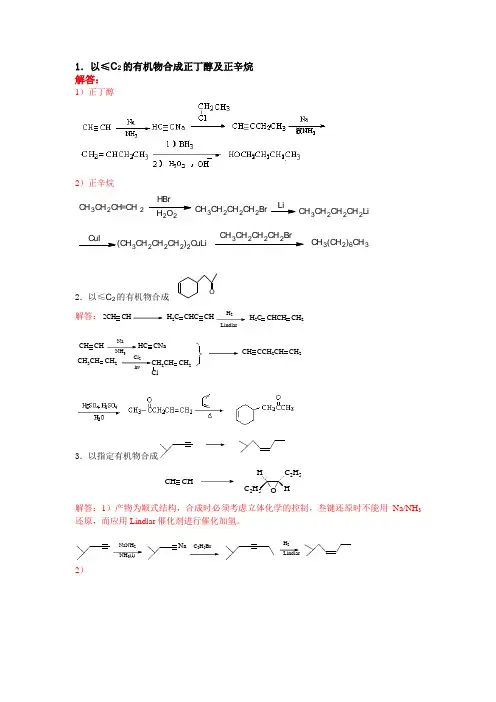 1．以≤C₂的有机物合成正丁醇及正辛烷
解答：
1）正丁醇
CH≡CH Na NH₃ HC≡CNa CH₂CH₃ Cl CH≡CCH₂CH₃ Na
CH₂=CHCH₂CH₃ 1)BH₃ 2) H₂O₂ , OH⁻ HOCH₂CH₂CH₂CH₃
2）正辛烷
CH₃CH₂CH=CH₂ HBr H₂O₂ CH₃CH₂CH₂CH₂Br Li CH₃CH₂CH₂CH₂Li
CuI (CH₃CH₂CH₂CH₂)₂CuLi CH₃CH₂CH₂CH₂Br CH₃(CH₂)₆CH₃
2．以≤C₂的有机物合成 O
解答：2CH≡CH H₂C=CHC≡CH H₂ Lindlar H₂C=CHCH=CH₂
CH≡CH Na NH₃ HC≡CNa
CH₃CH=CH₂ Cl₂ hv CH₂CH=CH₂ Cl
CH≡CCH₂CH=CH₂
HgSO₄,H₂SO₄ H₂O CH₃-CCH₂CH=CH₂ O Δ CH₂CCH₃ O
3．以指定有机物合成
CH≡CH H C₂H₅ C₂H₅ O H
解答：1）产物为顺式结构，合成时必须考虑立体化学的控制，叁键还原时不能用 Na/NH₃
还原，而应用 Lindlar 催化剂进行催化加氢。
NaNH₂ NH₃(l) Na C₂H₅Br H₂ Lindlar
2）